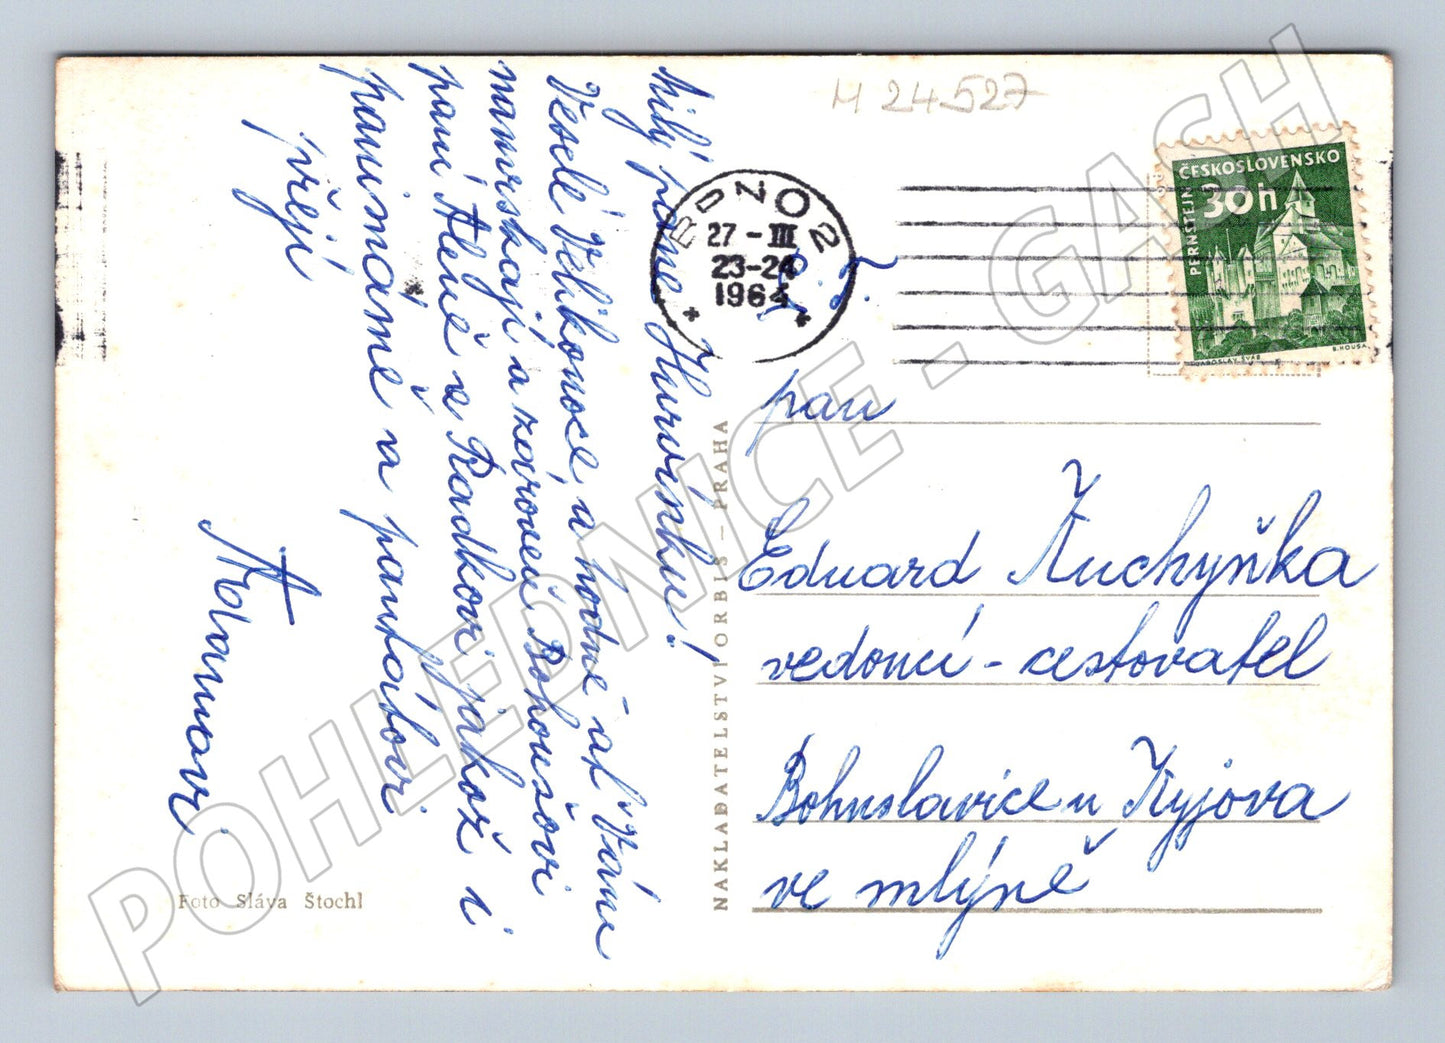 Milý pane Hurvínku!
Veselé Velikonoce, a hodně ať Vám
namrskají a zároveň Bohoušovi
paní Aleně s Radkovi jakož i
panimámě a pantátovi
přejí
Adamovi
Foto Sláva Štochl
NAKLADATELSTVÍ ORBIS – PRAHA
M 24527
BRNO 2
27 - III
23-24
1964
ČESKOSLOVENSKO
30h
PERNŠTEJN
JAROSLAV ŠVÁB
B. HOUSA
pan
Eduard Kuchyňka
vedoucí - cestovatel
Bohuslavice u Kyjova
ve mlýně
POHLEDNICE - GASH